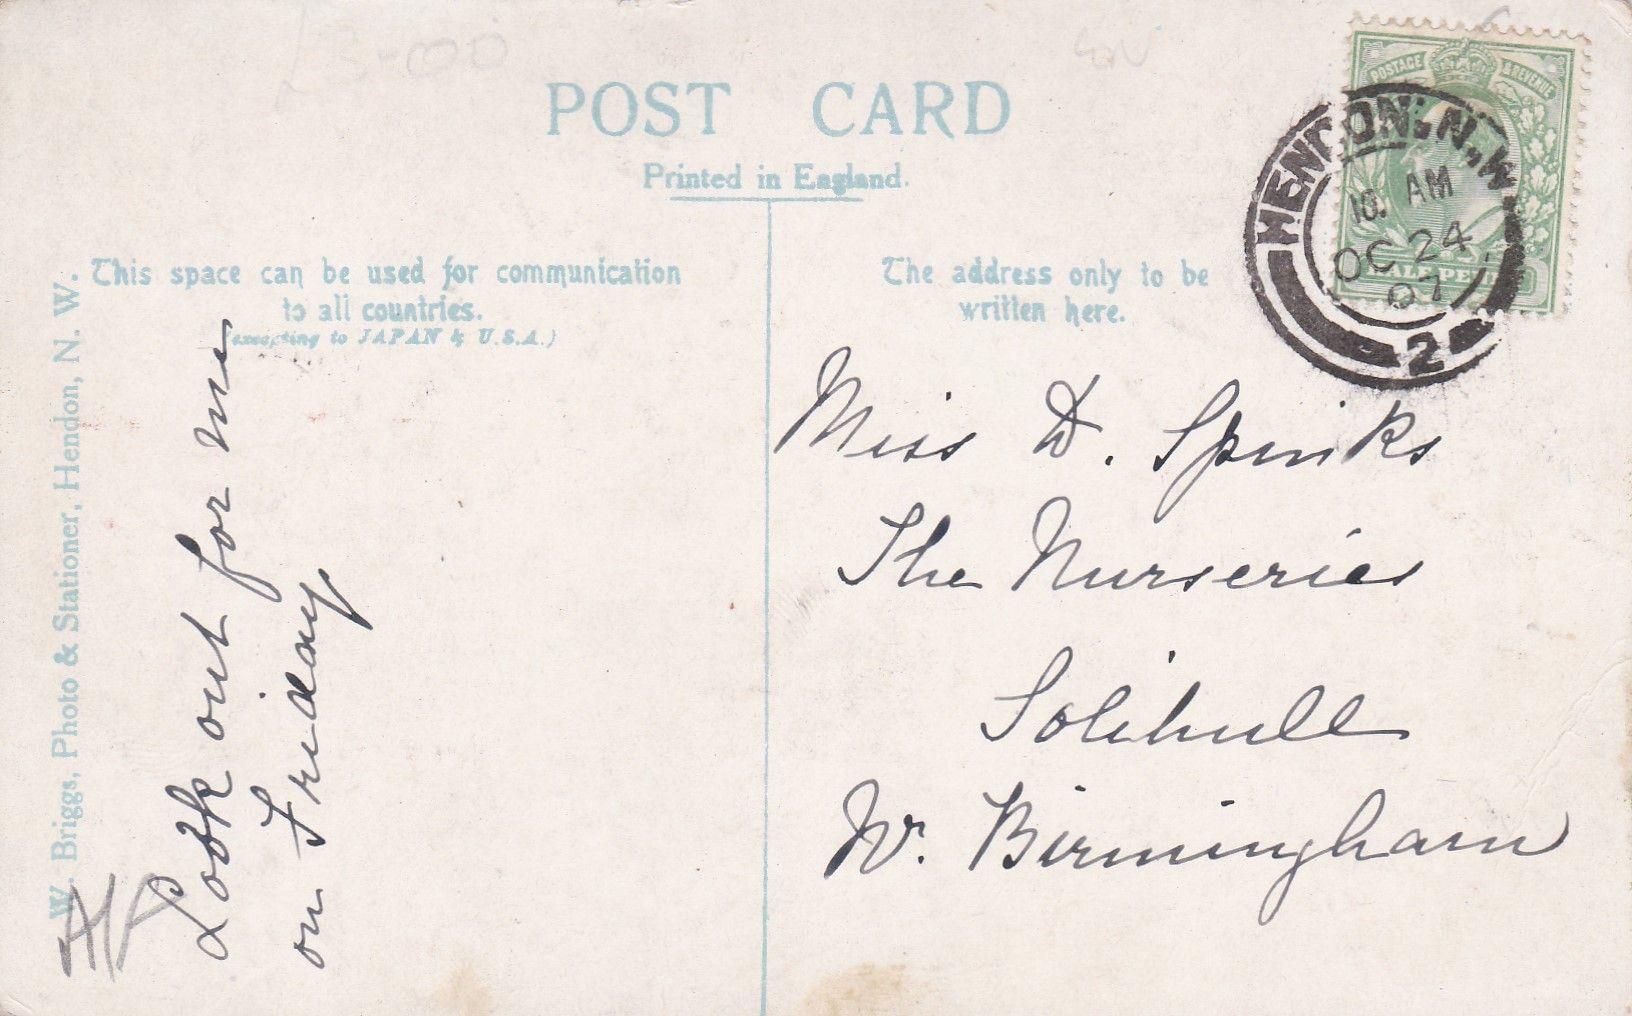 POST CARD
Printed in England.
This space can be used for communication
to all countries.
(excepting to JAPAN & U.S.A.)
The address only to be
written here.
W. Briggs, Photo & Stationer, Hendon, N. W.
Look out for me
on Friday
Miss D. Spinks
The Nurseries
Solihull
Nr. Birmingham
POSTAGE & REVENUE
HALFPENNY
HENDON, N.W.
10. AM
OC 24
07
2
£3-00